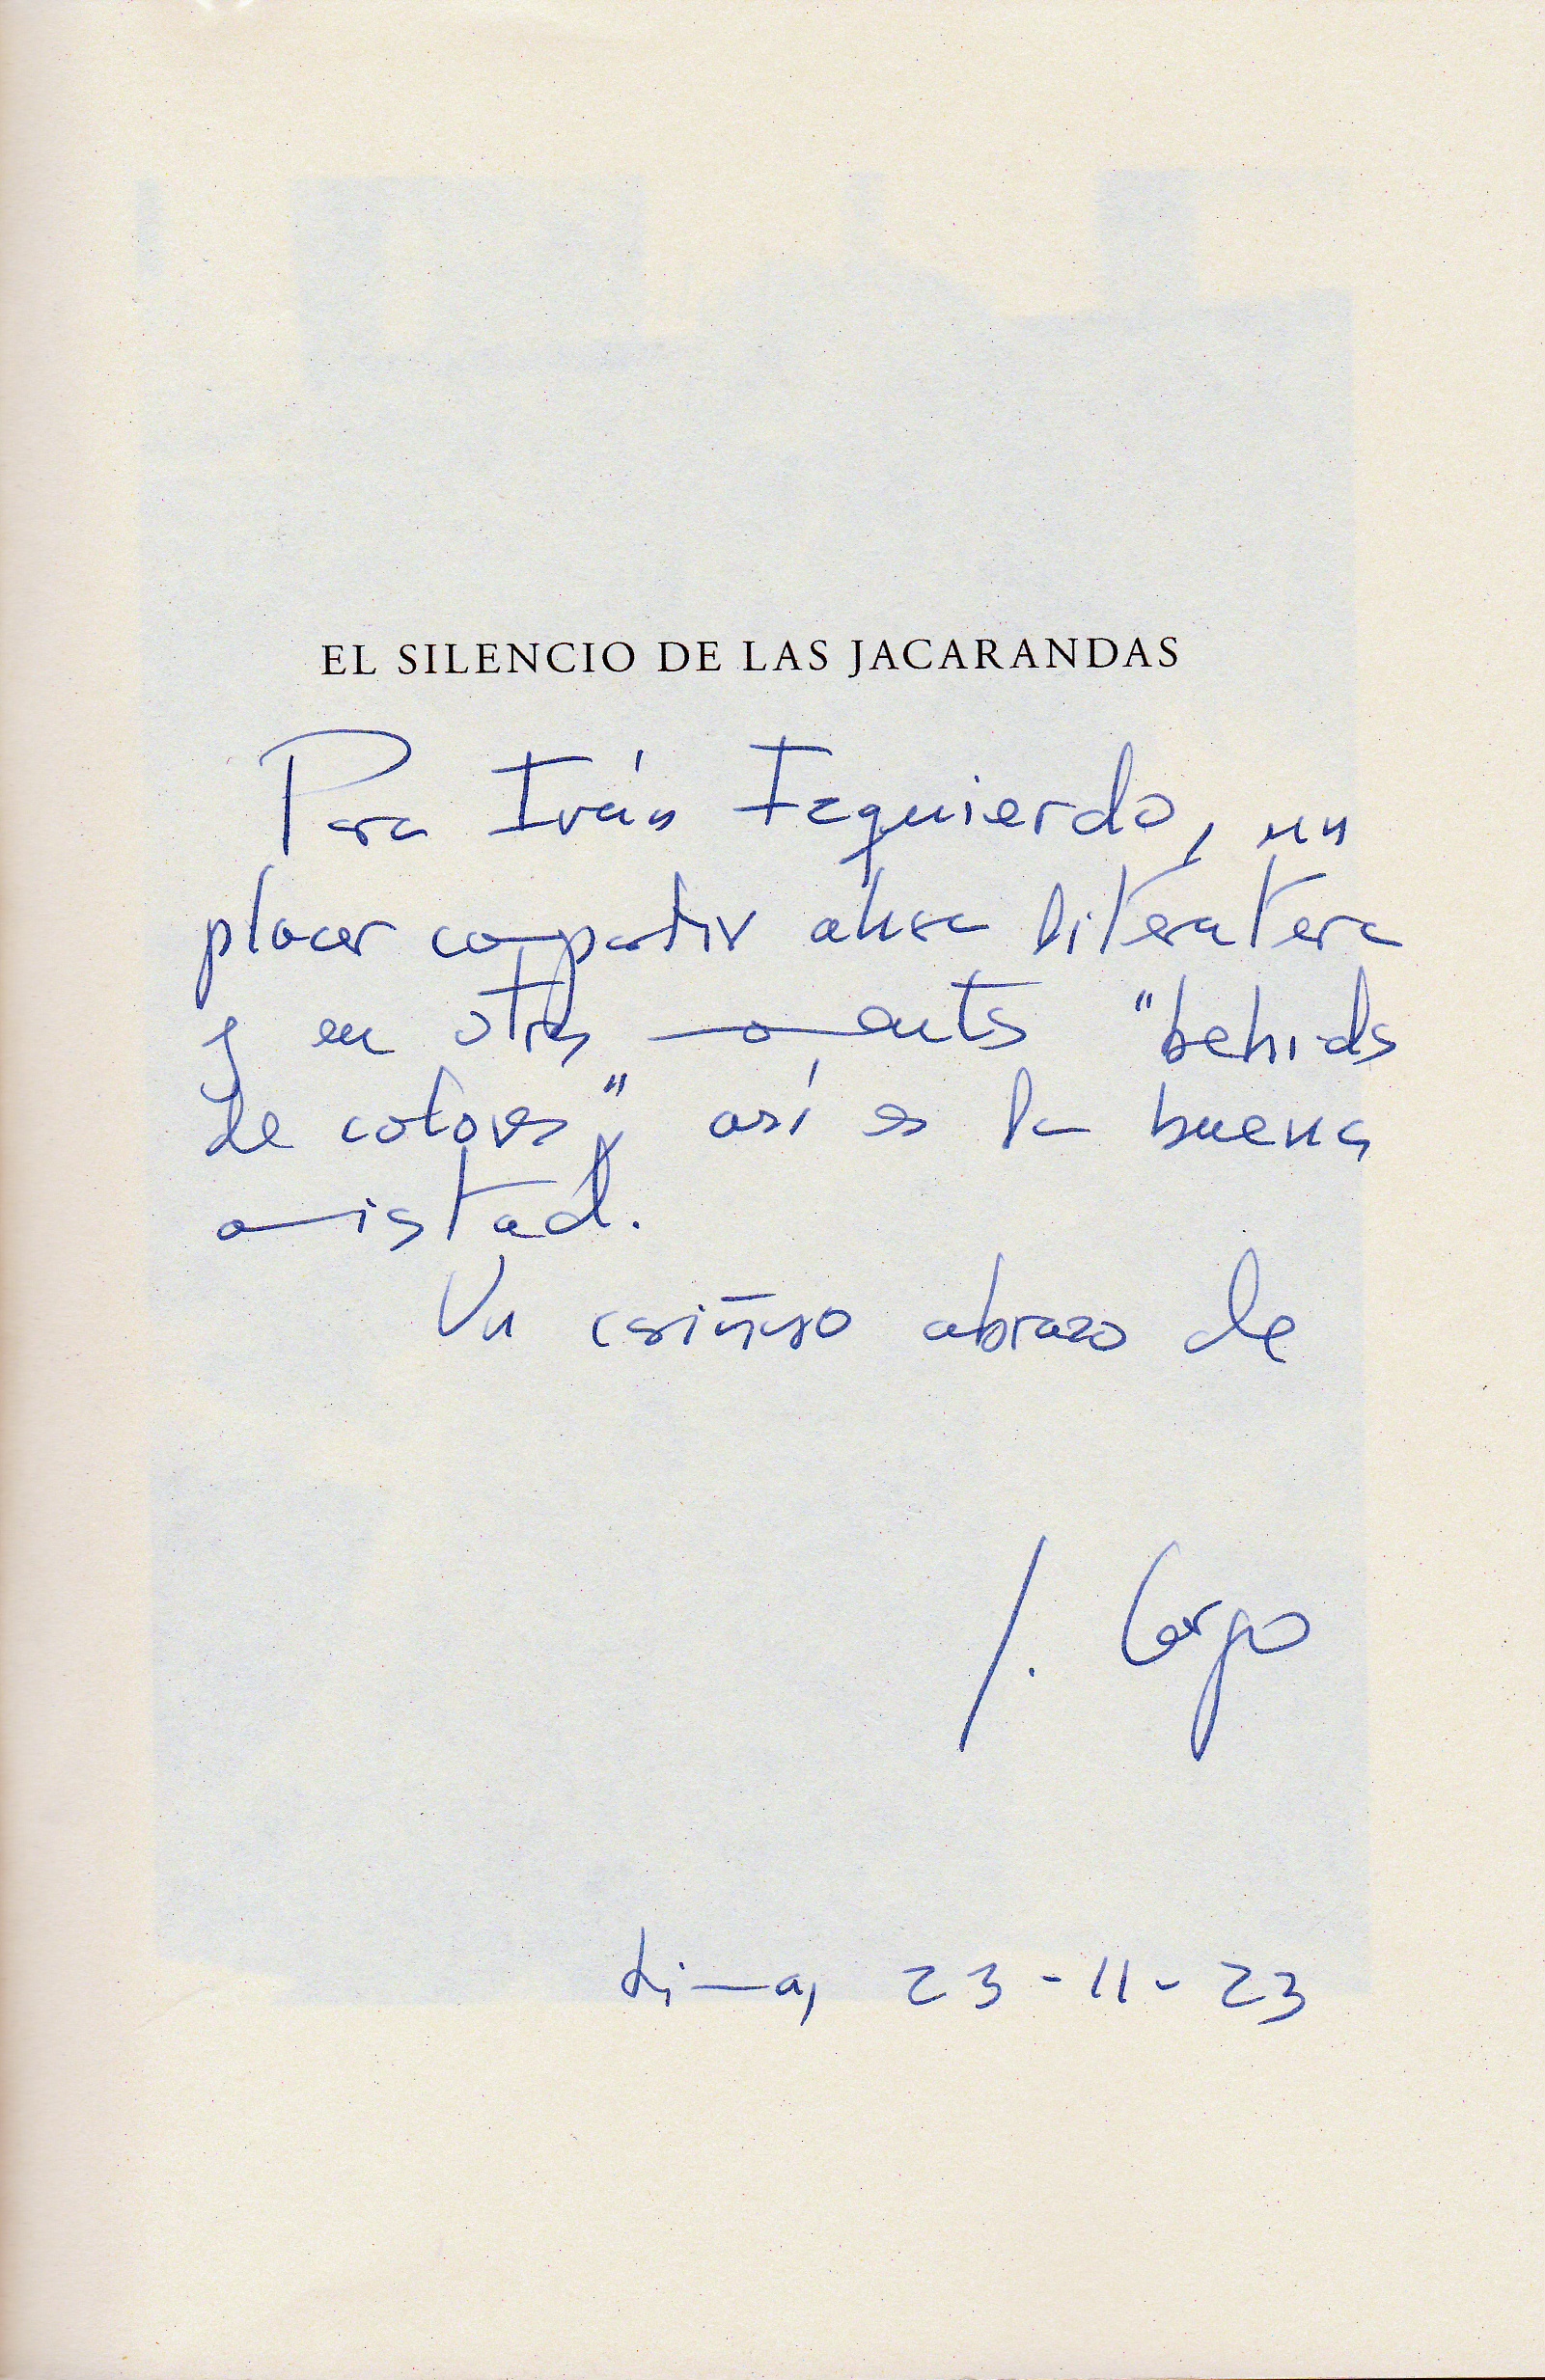 EL SILENCIO DE LAS JACARANDAS
Para Iván Izquierdo, un
placer compartir ahora literatura
y en otros momentos "bebidas
de colores", así es la buena
amistad.
Un cariñoso abrazo de
J. Carpo
Lima, 23-11-23